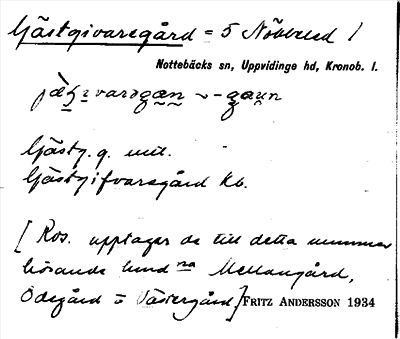 Gästgivaregård = 5 Nöbbeled 1
Nottebäcks sn, Uppvidinge hd, Kronob. l.
Gästg. g. mtl.
Gästgifvaregård Kb.
[Ros. upptager de till detta nummer
hörande hmd na Mellangård,
Ödegård o Västergård.] FRITZ ANDERSSON 1934